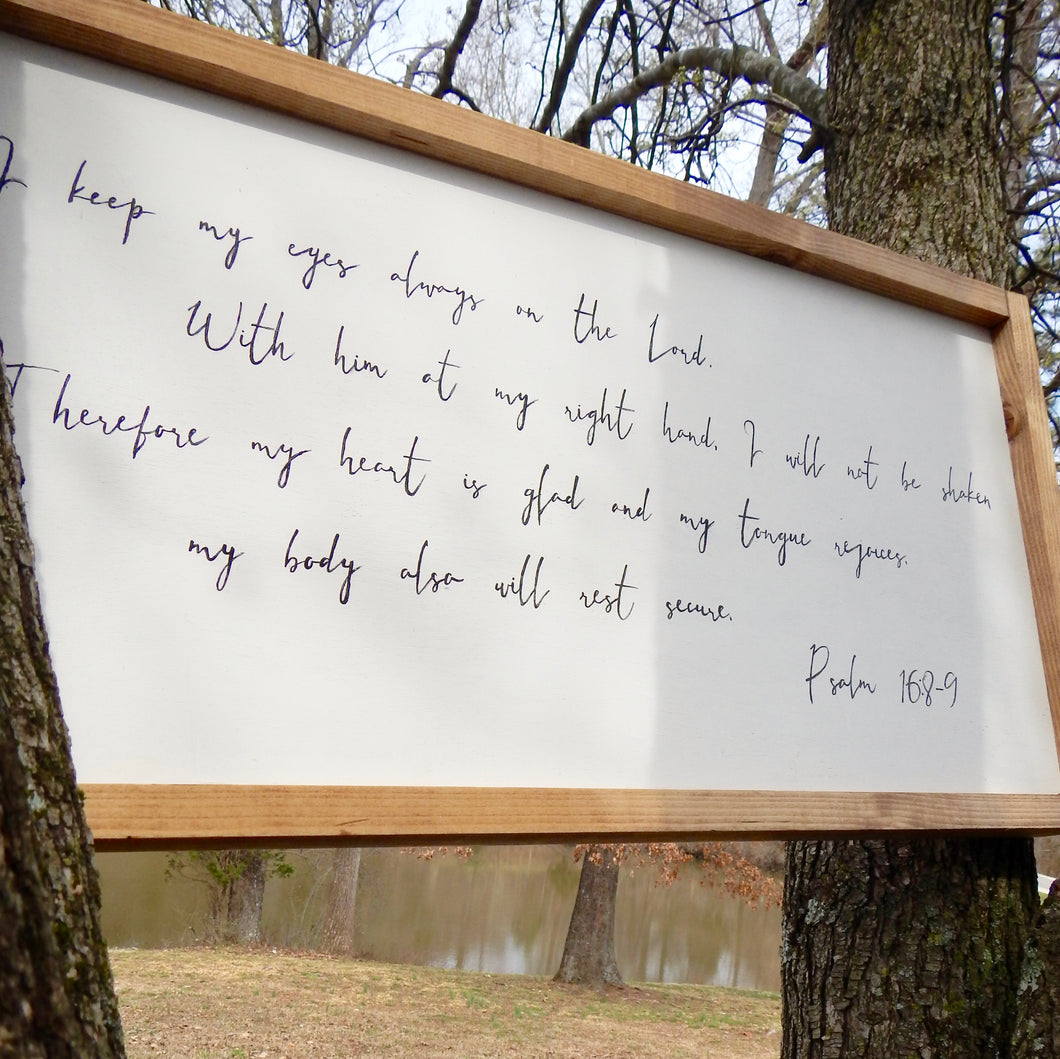 I keep my eyes always on the Lord.
With him at my right hand, I will not be shaken
Therefore my heart is glad and my tongue rejoices.
my body also will rest secure.
Psalm 16:8-9